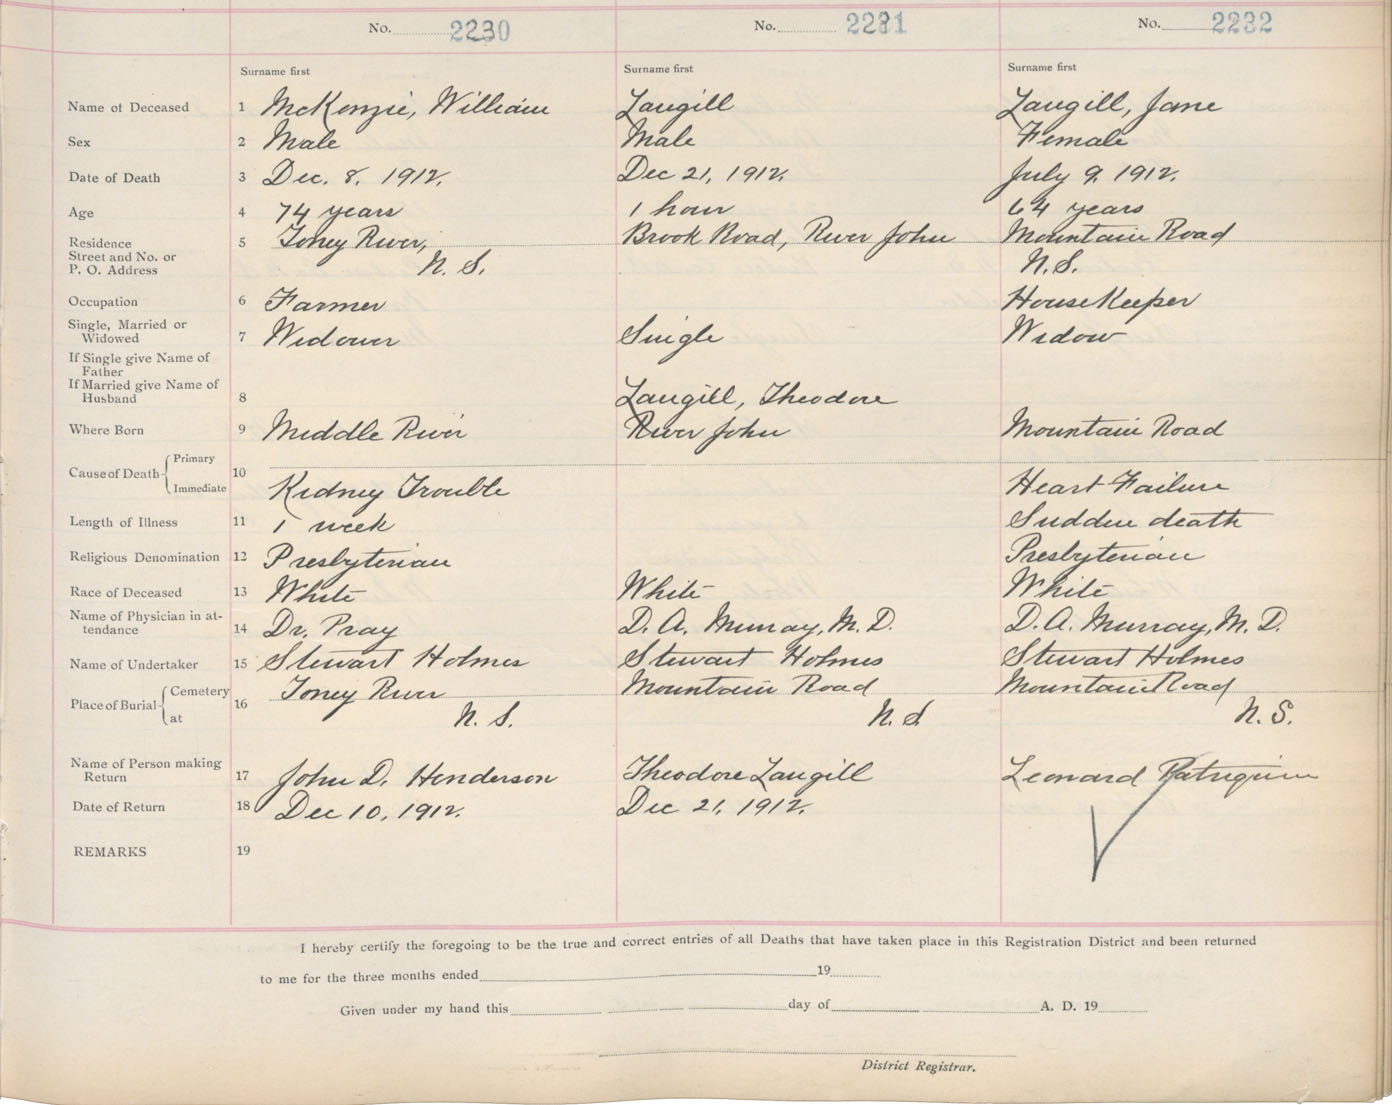 No. 2230 No. 2231 No. 2232
Surname first Surname first Surname first
Name of Deceased 1 McKenzie, William Langill Langill, Jane
Sex 2 Male Male Female
Date of Death 3 Dec. 8, 1912. Dec 21, 1912. July 9, 1912.
Age 4 74 years 1 hour 64 years
Residence 5 Toney River, Brook Road, River John Mountain Road
Street and No. or
P. O. Address N. S. N.S.
Occupation 6 Farmer HouseKeeper
Single, Married or
Widowed 7 Widower Single Widow
If Single give Name of
Father
If Married give Name of
Husband 8 Langill, Theodore
Where Born 9 Middle River River John Mountain Road
Primary
Cause of Death 10
Immediate Kidney Trouble Heart Failure
Length of Illness 11 1 week Sudden death
Religious Denomination 12 Presbyterian Presbyterian
Race of Deceased 13 White White White
Name of Physician in at-
tendance 14 Dr. Pray D. A. Murray, M. D. D. A. Murray, M. D.
Name of Undertaker 15 Stewart Holmes Stewart Holmes Stewart Holmes
Cemetery Toney River Mountain Road Mountain Road
Place of Burial 16
at N. S. N. S N. S.
Name of Person making
Return 17 John D. Henderson Theodore Langill Leonard Patriquin
Date of Return 18 Dec 10, 1912. Dec 21, 1912.
REMARKS 19
I hereby certify the foregoing to be the true and correct entries of all Deaths that have taken place in this Registration District and been returned
to me for the three months ended 19
Given under my hand this day of A. D. 19
District Registrar.